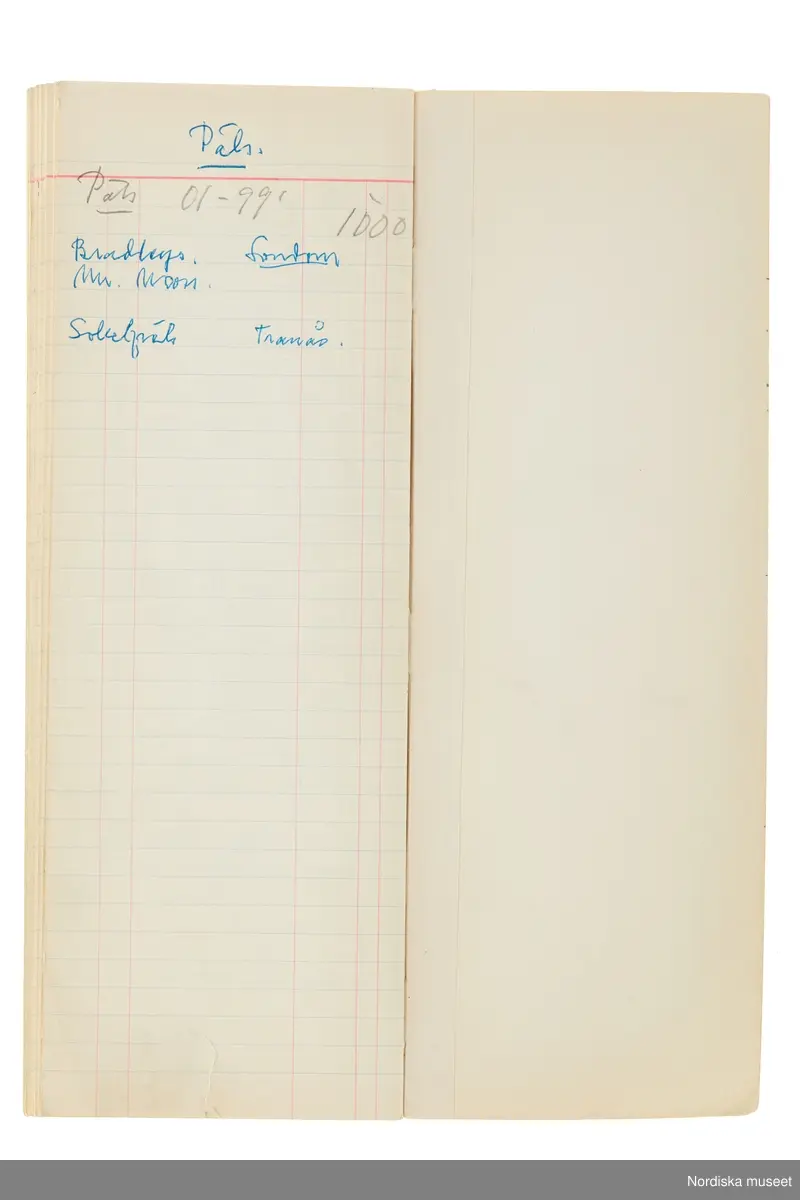 Päls.
Päls 01-99'
1000
Bradleys. London
Mr. Moon.
Sobelpäls Tranås.
Nordiska museet